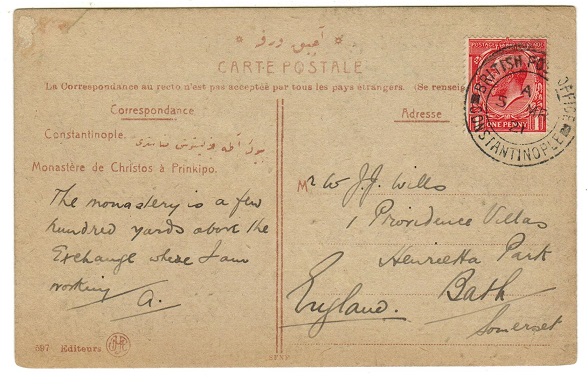 CARTE POSTALE
La Correspondance au recto n'est pas acceptée par tous les pays étrangers. (Se renseign
Correspondance
Adresse
Constantinople.
Monastère de Christos à Prinkipo.
The monastery is a few
hundred yards above the
Exchange where I am
working
A.
Mr W J.J. Wills
1 Providence Villas
Henrietta Park
Bath
Somerset
England.
597 Editeurs
POSTAGE
ONE PENNY
1
BRITISH POST OFFICE
CONSTANTINOPLE
A
5
21